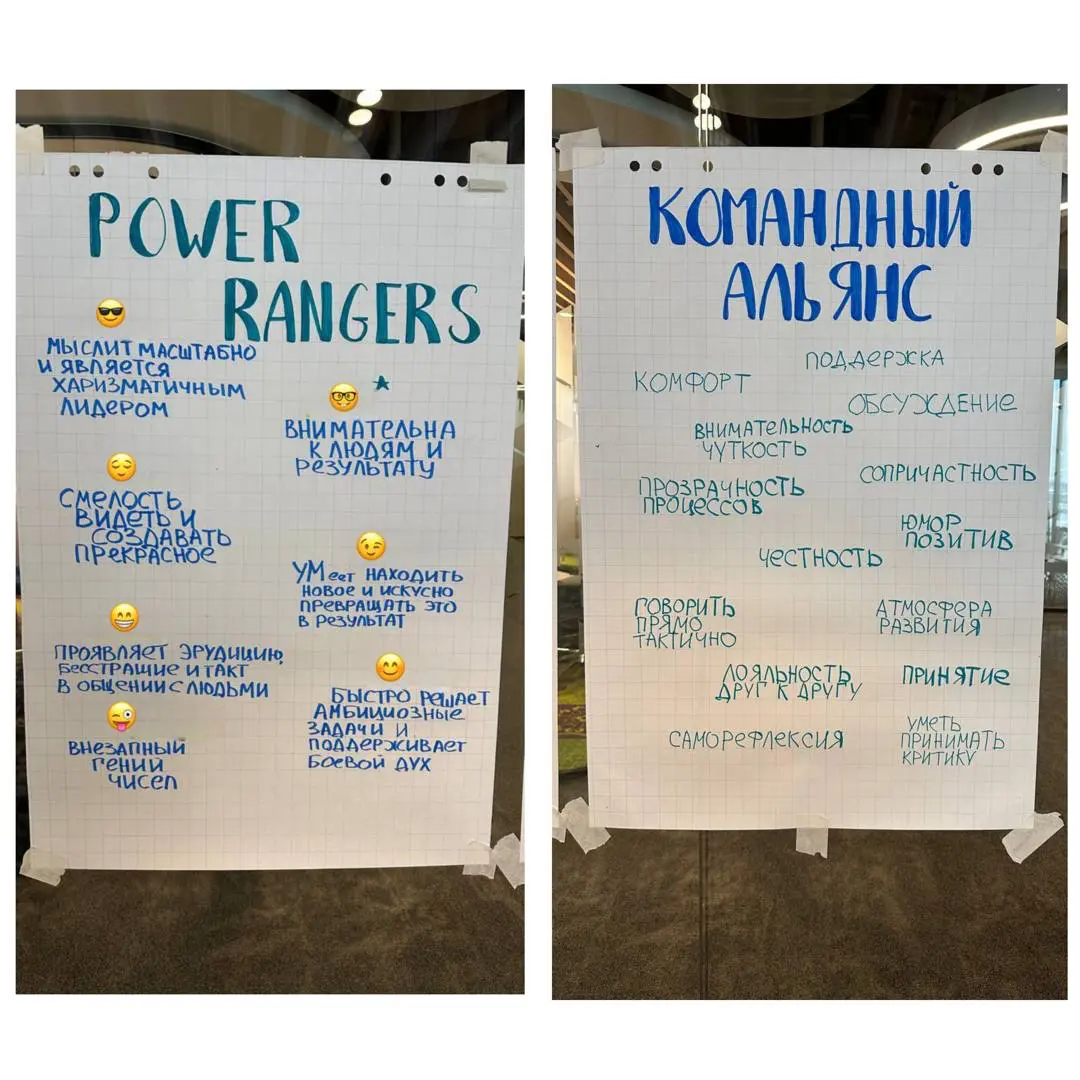 POWER
RANGERS
МЫСЛИТ МАСШТАБНО
И ЯВЛЯЕТСЯ
ХАРИЗМАТИЧНЫМ
ЛИДЕРОМ
СМЕЛОСТЬ
ВИДЕТЬ И
СОЗДАВАТЬ
ПРЕКРАСНОЕ
ПРОЯВЛЯЕТ ЭРУДИЦИЮ,
БЕССТРАШИЕ И ТАКТ
В ОБЩЕНИИ С ЛЮДЬМИ
ВНЕЗАПНЫЙ
ГЕНИЙ
ЧИСЕЛ
ВНИМАТЕЛЬНА
К ЛЮДЯМ И
РЕЗУЛЬТАТУ
УМеет НАХОДИТЬ
НОВОЕ И ИСКУСНО
ПРЕВРАЩАТЬ ЭТО
В РЕЗУЛЬТАТ
БЫСТРО РЕШАЕТ
АМБИЦИОЗНЫЕ
ЗАДАЧИ И
ПОДДЕРЖИВАЕТ
БОЕВОЙ ДУХ
КОМАНДНЫЙ
АЛЬЯНС
ПОДДЕРЖКА
КОМФОРТ
ОБСУЖДЕНИЕ
ВНИМАТЕЛЬНОСТЬ
ЧУТКОСТЬ
СОПРИЧАСТНОСТЬ
ПРОЗРАЧНОСТЬ
ПРОЦЕССОВ
ЮМОР
ПОЗИТИВ
ЧЕСТНОСТЬ
ГОВОРИТЬ
ПРЯМО
ТАКТИЧНО
АТМОСФЕРА
РАЗВИТИЯ
ЛОЯЛЬНОСТЬ
ДРУГ К ДРУГУ
ПРИНЯТИЕ
САМОРЕФЛЕКСИЯ
УМЕТЬ
ПРИНИМАТЬ
КРИТИКУ